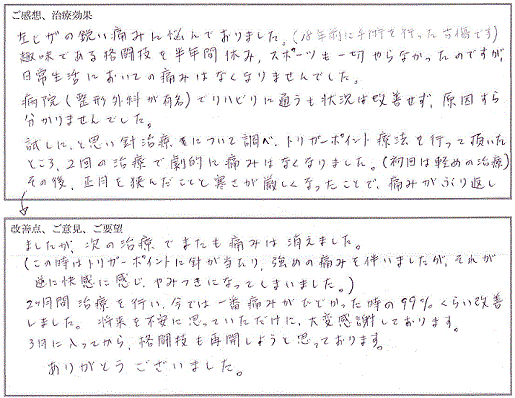 ご感想、治療効果
左ヒザの鋭い痛みに悩んでおりました。(18年前に手術を行った古傷です)
趣味である格闘技を半年間休み、スポーツも一切やらなかったのですが、
日常生活においての痛みはなくなりませんでした。
病院(整形外科が有名)でリハビリに通うも状況は改善せず、原因すら
分かりませんでした。
試しに、と思い針治療をについて調べ、トリガーポイント療法を行って頂いた
ところ、2回の治療で劇的に痛みはなくなりました。(初回は軽めの治療)
その後、正月を挟んだことと寒さが厳しくなったことで、痛みがぶり返し
改善点、ご意見、ご要望
ましたが、次の治療でまたも痛みは消えました。
(この時はトリガーポイントに針が当たり、強めの痛みを伴いましたが、それが
逆に快感に感じ、やみつきになってしまいました。)
2ヶ月間治療を行い、今では一番痛みがひどかった時の99%くらい改善
しました。将来を不安に思っていただけに、大変感謝しております。
3月に入ってから、格闘技も再開しようと思っております。
ありがとうございました。